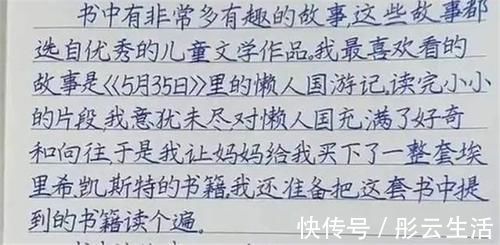 书中有非常多有趣的故事,这些故事都
选自优秀的儿童文学作品。我最喜欢看的
故事是《5月35日》里的懒人国游记,读完小小
的片段,我意犹未尽对懒人国充满了好奇
和向往于是我让妈妈给我买下了一整套埃
里希凯斯特的书籍,我还准备把这套书中提
到的书籍读个遍。
快传号/彤云生活